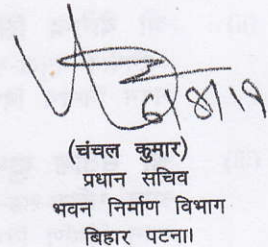 6/8/19
(चंचल कुमार)
प्रधान सचिव
भवन निर्माण विभाग
बिहार पटना।